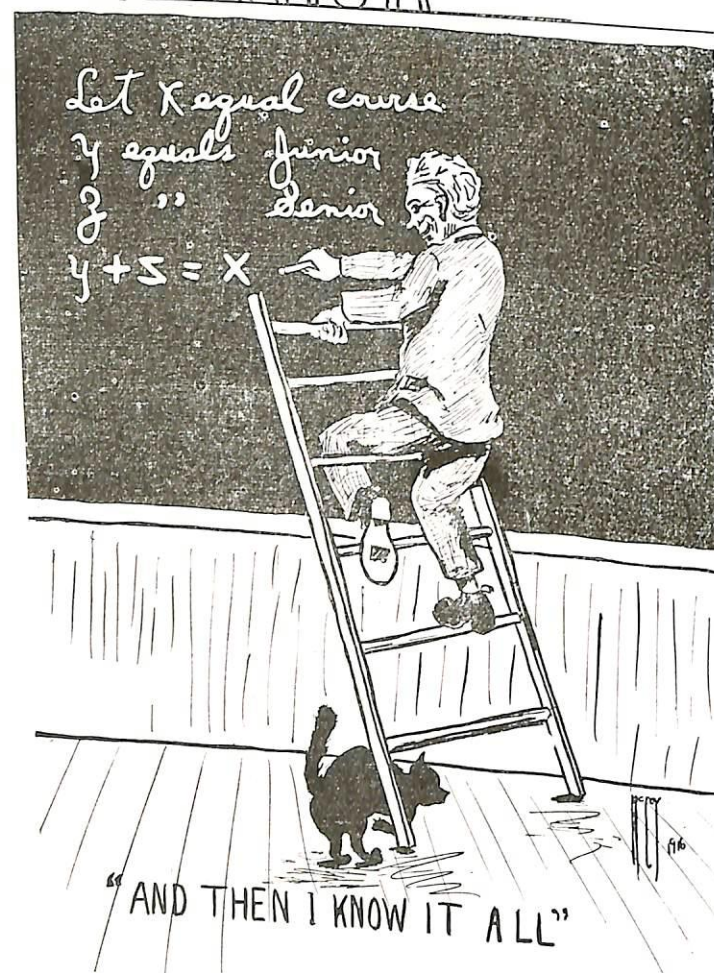 Let X equal course
y equals Junior
z " Senior
y + z = X
1916
"AND THEN I KNOW IT ALL"